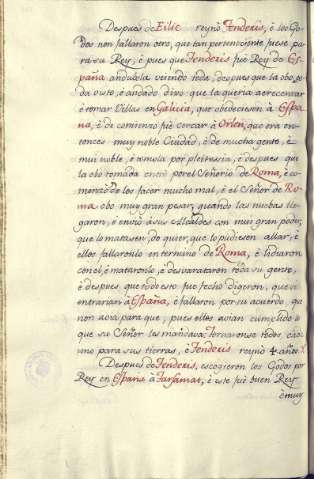 Despues de Eilic reynò Tenderis, è los Go-
dos non fallaron otro, que tan pertenesciente fuese pa-
ra su Rey, è pues que Tenderis fuè Rey de Es-
paña andubola veiendo toda, despues que la obo to-
da visto, è andado divo que la queria acrecentar
è tomar Villas en Galicia, que obedeciesen à Espa-
na, è de comienzo fuè cercar à Orlen, que era en-
tonces muy noble Ciudad, è de mucha gente, è
mui noble, è tomola por pleitesia, è despues que
la obo tomada entrò por el Señorio de Roma, è co-
menzòles de los facer mucho mal, è el Señor de Ro-
ma obo muy gran pesar, quando las nuebas lle-
garon, è envió à sus Alcaldes con mui gran poder,
que lo matasen, do quier, que lo pudiesen allar, è
ellos fallaronlo en termino de Roma, è lidiaron
con èl, è mataronlo, è desvarataron toda su gente,
è despues, que todo esto fue fecho digeron, que se
entrarian à España, è fallaron por su acuerdo, que
non avia para que, pues ellos avian cumplido lo
que su Señor les mandava, tornaronse todos cada
uno para sus tierras, è Tenderis reynò 4 años.
Despues de Tenderis, escogieron los Godos por
Rey en España à Tarsamar, è este fuè buen Rey
è muy